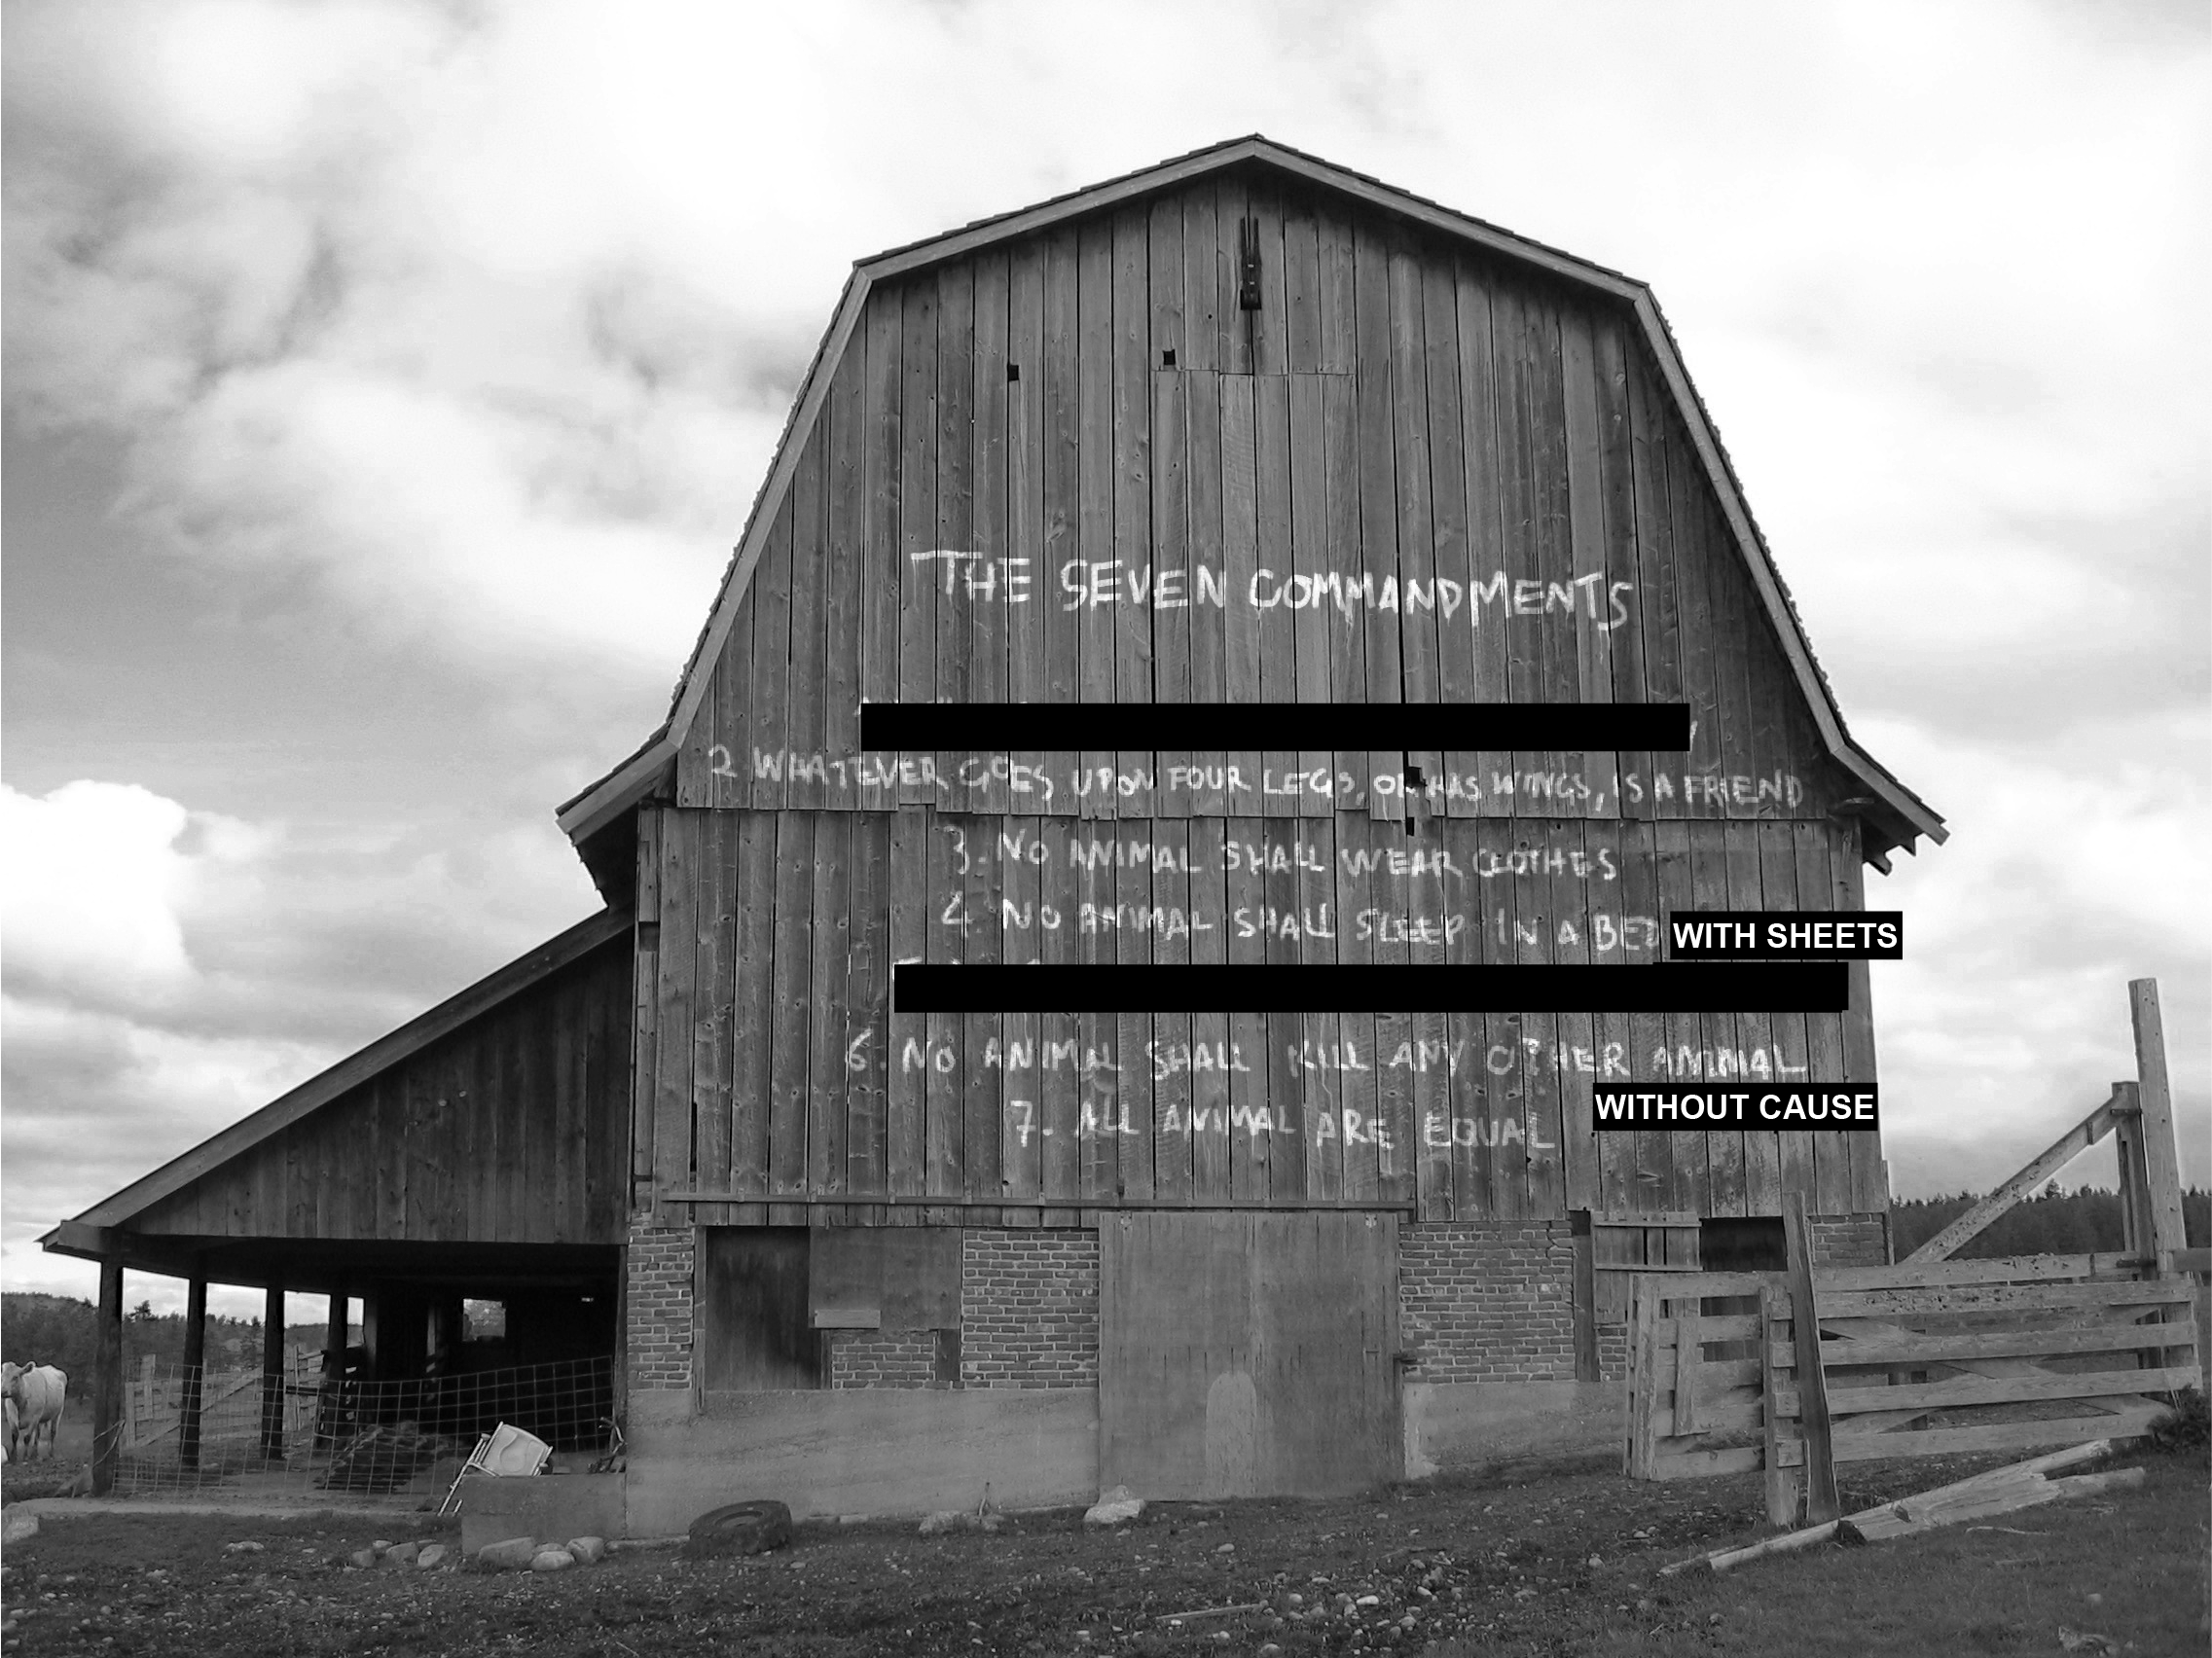 THE SEVEN COMMANDMENTS
2 WHATEVER GOES UPON FOUR LEGS, OR HAS WINGS, IS A FRIEND
3. NO ANIMAL SHALL WEAR CLOTHES
4. NO ANIMAL SHALL SLEEP IN A BED WITH SHEETS
6. NO ANIMAL SHALL KILL ANY OTHER ANIMAL
WITHOUT CAUSE
7. ALL ANIMAL ARE EQUAL